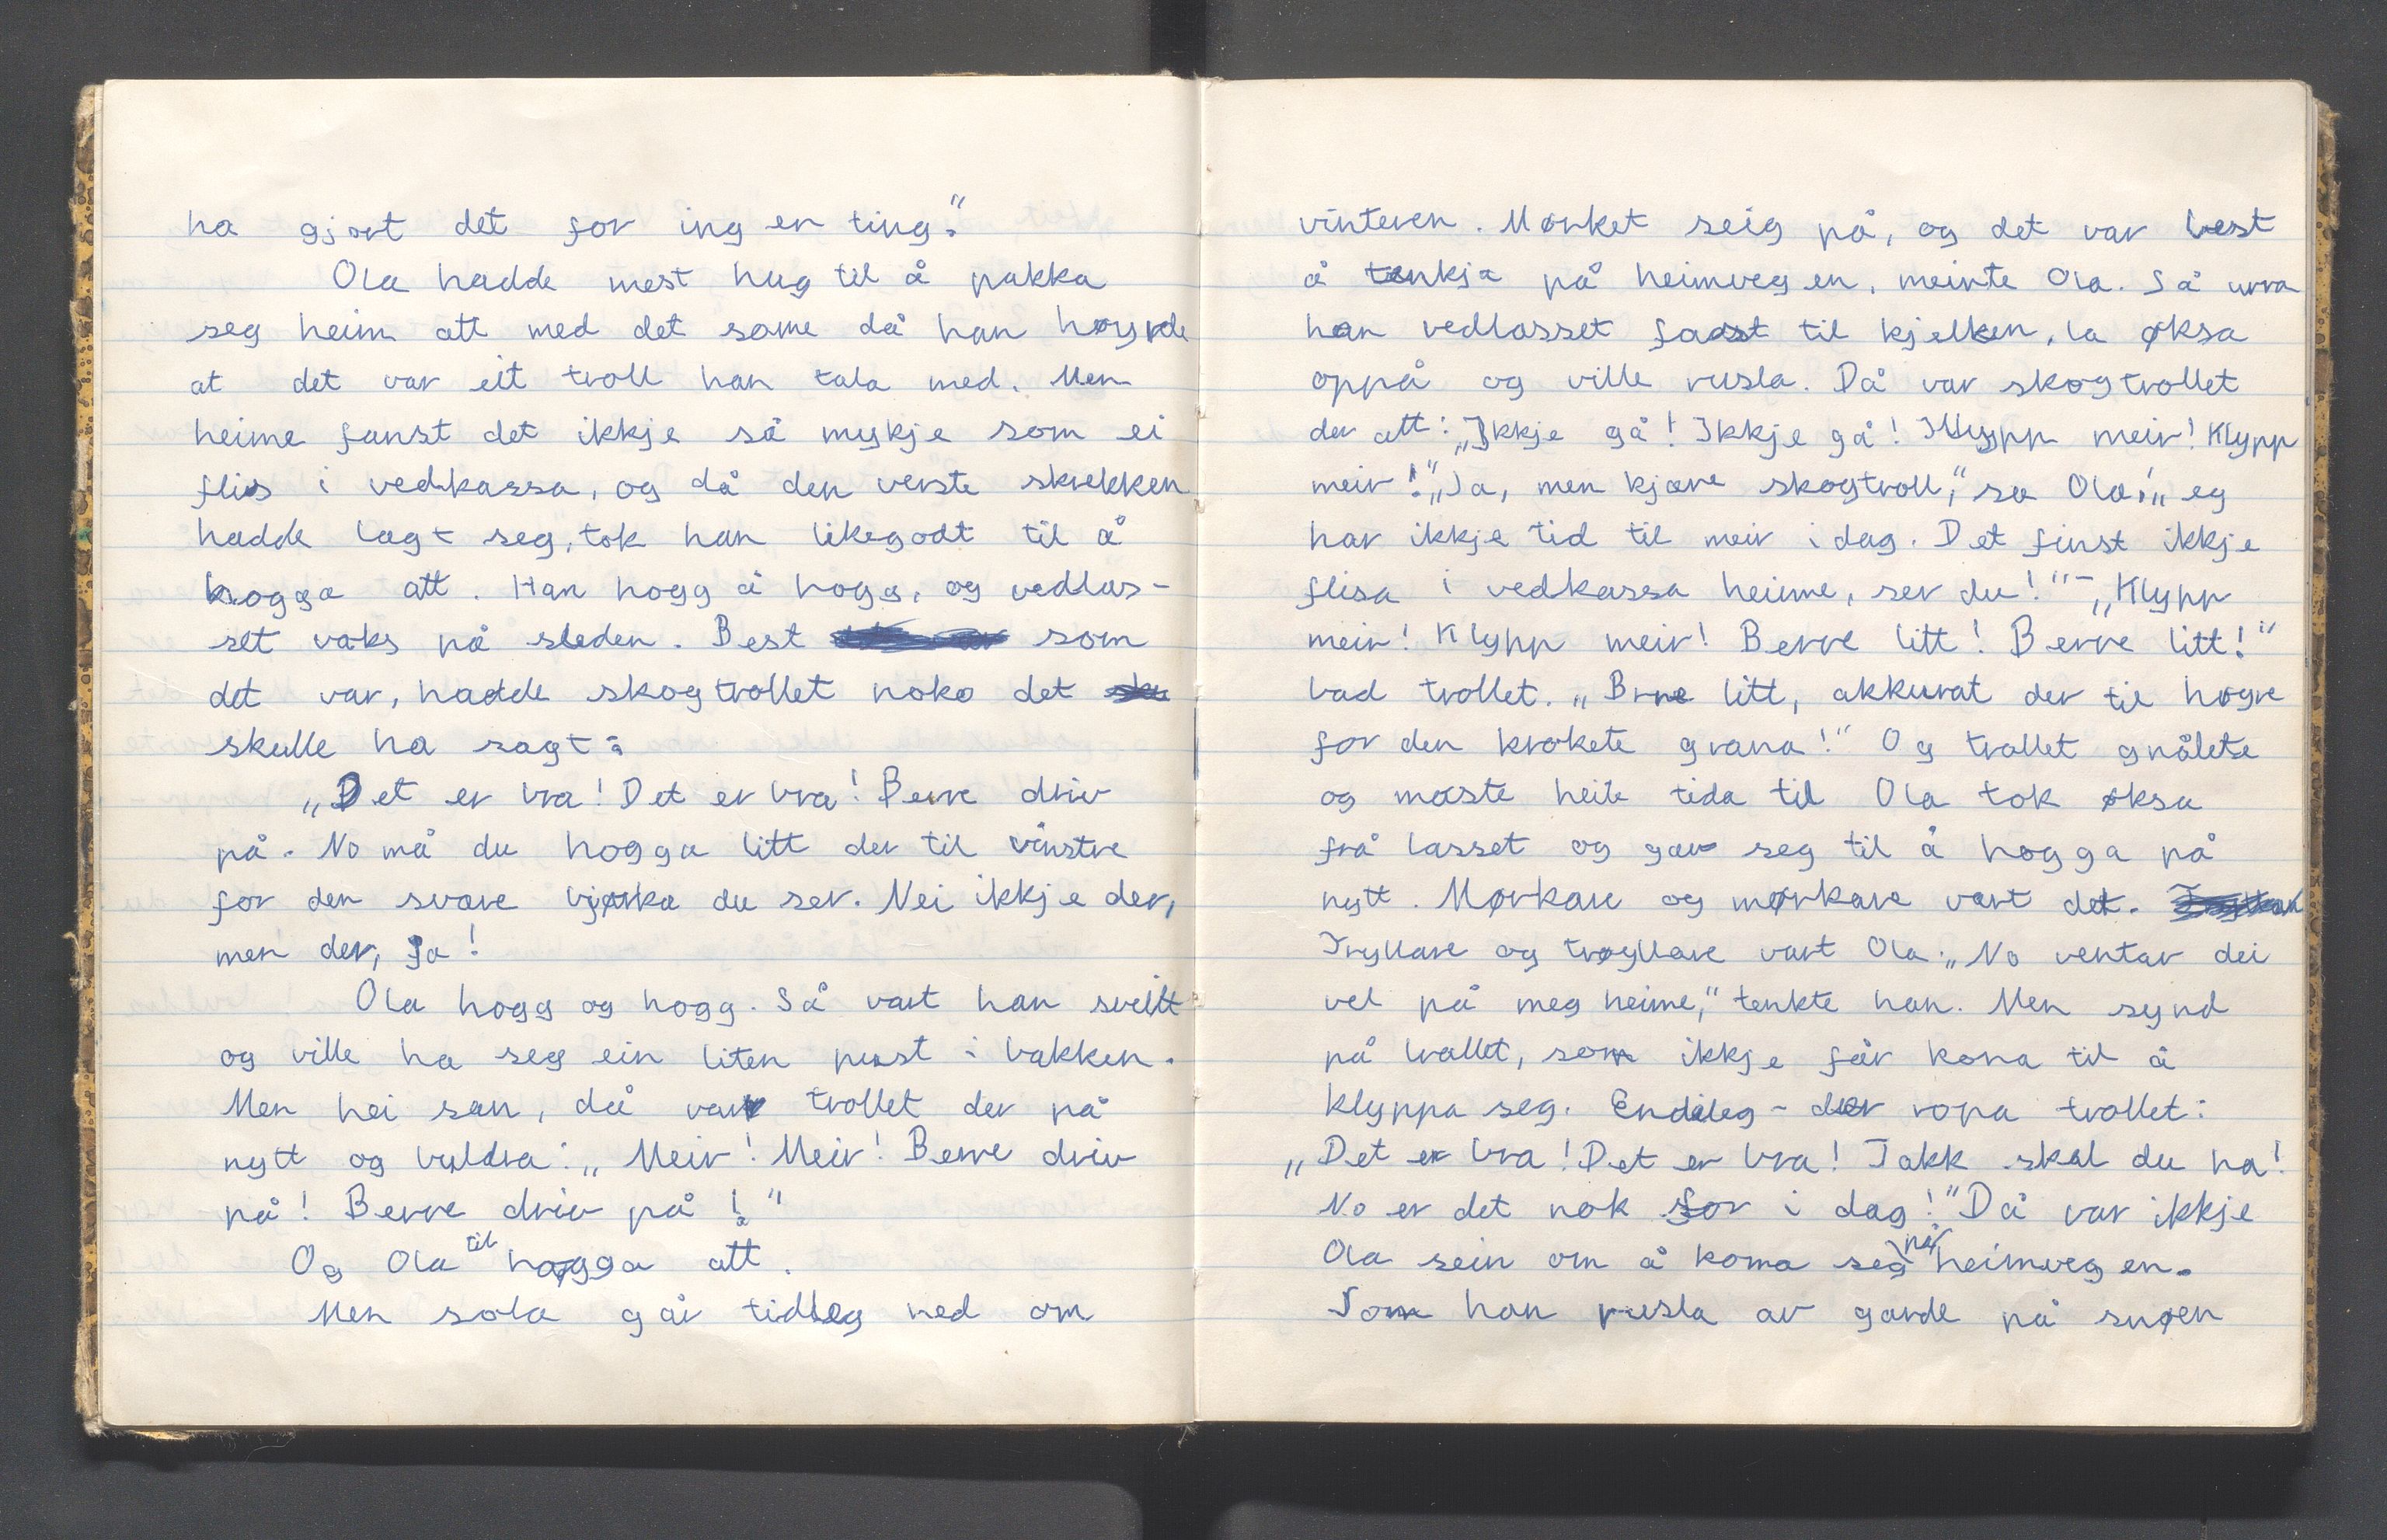 ha gjort det for ingen ting."
Ola hadde mest hug til å pakka
seg heim att med det same då han høyrde
at det var eit troll han tala med. Men
heime fanst det ikkje så mykje som ei
flis i vedkassa, og då den verste skrekken
hadde lagt seg, tok han likegodt til å
hogga att. Han hogg å hogg, og vedlas-
set vaks på sleden. Best som
det var, hadde skogtrollet noko det
skulle ha sagt:
„Det er bra! Det er bra! Berre driv
på. No må du hogga litt der til vinstre
for den svære bjørka du ser. Nei ikkje der,
men der, ja!
Ola hogg og hogg. Så vart han sveitt
og ville ha seg ein liten pust i bakken.
Men hei san, då var trollet der på
nytt og buldra: „Meir! Meir! Berre driv
på! Berre driv på!"
Og Ola til å hogga att.
Men sola går tidleg ned om
vinteren. Mørket seig på, og det var best
å tenkja på heimvegen, meinte Ola. Så urra
han vedlasset fast til kjelken, la øksa
oppå og ville rusla. Då var skogtrollet
der att: „Ikkje gå! Ikkje gå! Klypp meir! Klypp
meir!" „Ja, men kjære skogtroll," sa Ola, „eg
har ikkje tid til meir i dag. Det finst ikkje
flisa i vedkassa heime, ser du!" - „Klypp
meir! Klypp meir! Berre litt! Berre litt!"
bad trollet. „Brre litt, akkurat der til høgre
for den krokete grana!" Og trollet gnålete
og maste heile tida til Ola tok øksa
frå lasset og gav seg til å hogga på
nytt. Mørkare og mørkare vart det.
Trøyllare og trøyllare vart Ola. „No ventar dei
vel på meg heime," tenkte han. Men synd
på trollet, som ikkje får kona til å
klyppa seg. Endeleg - der ropa trollet:
„Det er bra! Det er bra! Takk skal du ha!
No er det nok for i dag!" Då var ikkje
Ola sein om å koma seg på heimvegen.
Som han rusla av garde på snøen